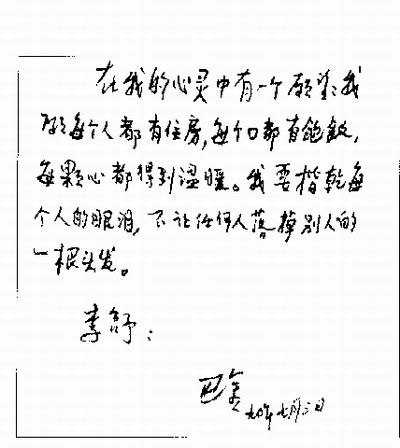 在我的心灵中有一个愿望：我
愿每个人都有住房，每个口都有饱饭，
每颗心都得到温暖。我要揩乾每
个人的眼泪，不让任何人落掉别人的
一根头发。
李舒：
巴金 九〇年七月三日